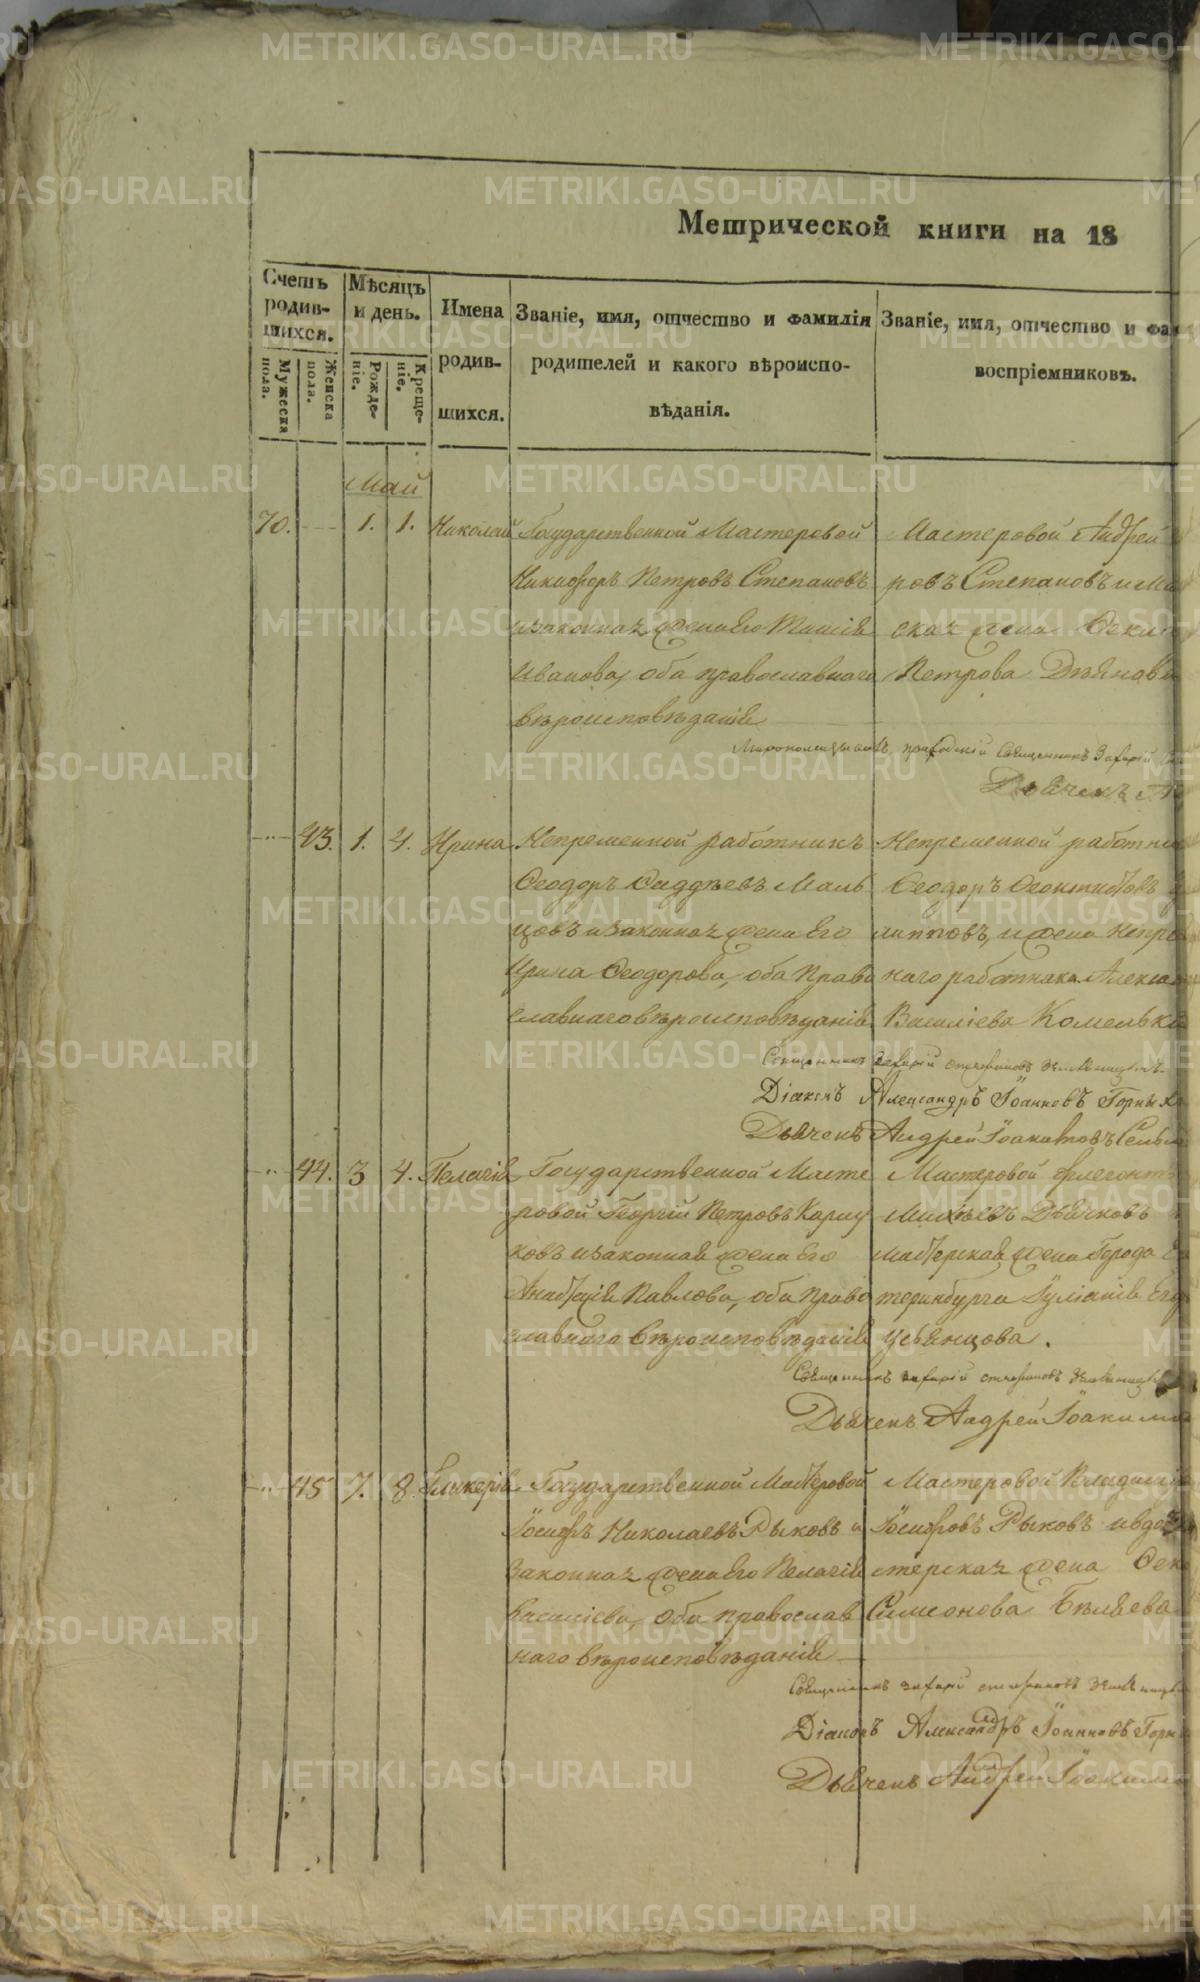 Метрической книги на 18
Счетъ родив-шихся.
Мужеска пола.
Женска пола.
Мѣсяцъ и день.
Рожде-ніе.
Креще-ніе.
Имена
родив-
шихся.
Званіе, имя, отчество и фамилія
родителей и какого вѣроиспо-
вѣданія.
Званіе, имя, отчество и фам
воспріемниковъ.
Май
70. 1. 1. Николай
Государственной Мастеровой
Никифоръ Петровъ Степановъ
и законная жена его
Иванова, оба православнаго
вѣроисповѣданія
Мастеровой Андрей
ровъ Степановъ и Ма
ская жена Фекла
Петрова
приходскій Священникъ Захарій
Дьячекъ
43. 1. 4. Ирина
Непременной работникъ
Феодоръ Фаддѣевъ Маль
цовъ и законная жена его
Ирина Феодорова, оба Право
славнаго вѣроисповѣданія
Непременной работни
Феодоръ
липповъ, и жена Непре
наго работника Алекса
Василіева
Священникъ Захарій Стефановъ
Діаконъ Александръ Іоанновъ Горныхъ
Дьячекъ Андрей Іоакимовъ
44. 3 4. Пелагія
Государственной Масте
ровой Георгій Петровъ
ковъ и законная жена его
Анастасія Павлова, оба право
славнаго вѣроисповѣданія
Мастеровой Флегонтъ
Дьячковъ
мастерская жена Города Ека
теринбурга Іуліанія Его
Священникъ Захарій Стефановъ
Дьячекъ Андрей Іоакимо
45 7. 8. Гликерія
Государственной Мастеровой
Іосифъ Николаевъ Рыковъ и
законная жена его Пелагія
Василіева, оба православ
наго вѣроисповѣданія
Мастеровой Владимиръ
Іосифовъ Рыковъ
стерская жена Фек
Симеонова Бѣляева
Священникъ Захарій Стефановъ
Діаконъ Александръ Іоанновъ Горн
Дьячекъ Андрей Іоакимо
METRIKI.GASO-URAL.RU